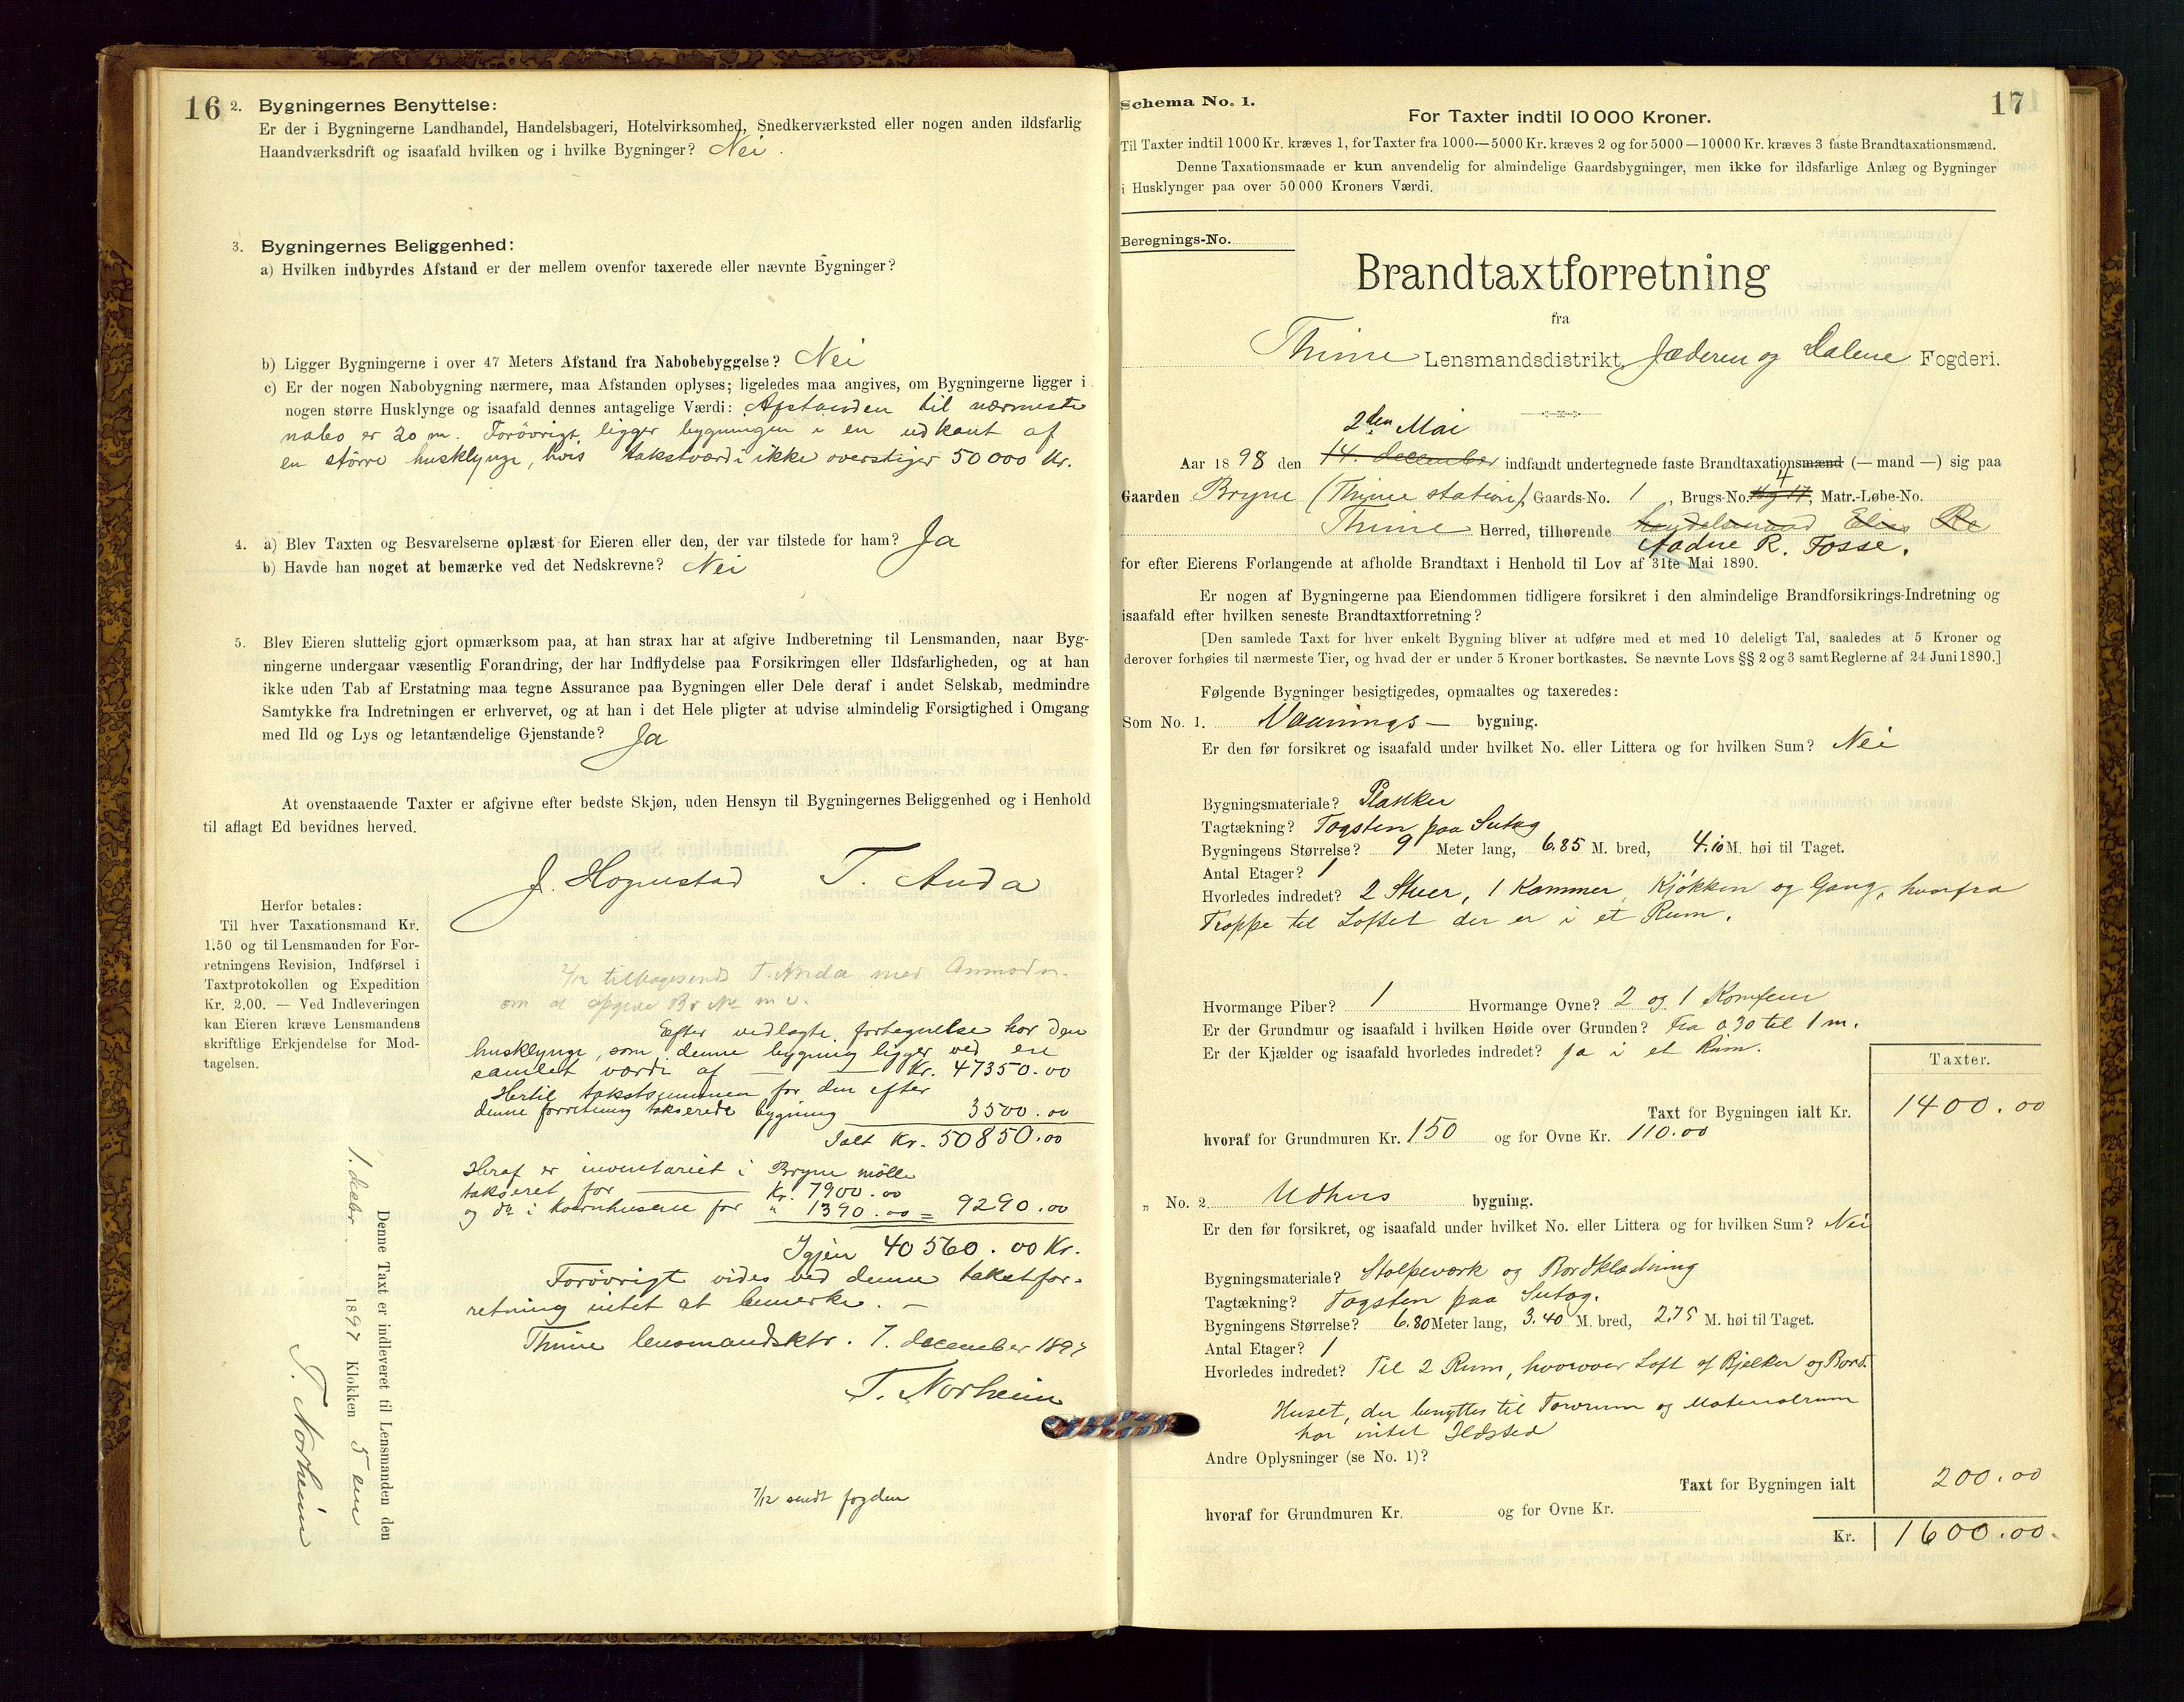 16
2. Bygningernes Benyttelse:
Er der i Bygningerne Landhandel, Handelsbageri, Hotelvirksomhed, Snedkerværksted eller nogen anden ildsfarlig
Haandværksdrift og isaafald hvilken og i hvilke Bygninger? Nei.
3. Bygningernes Beliggenhed:
a) Hvilken indbyrdes Afstand er der mellem ovenfor taxerede eller nævnte Bygninger?
b) Ligger Bygningerne i over 47 Meters Afstand fra Nabobebyggelse? Nei
c) Er der nogen Nabobygning nærmere, maa Afstanden oplyses; ligeledes maa angives, om Bygningerne ligger i
nogen større Husklynge og isaafald dennes antagelige Værdi: Afstanden til nærmeste
nabo er 20 m. Forövrigt ligger bygningen i en udkant af
en större husklynge, hvis takstværdi ikke overstiger 50000 Kr.
4. a) Blev Taxten og Besvarelserne oplæst for Eieren eller den, der var tilstede for ham? Ja
b) Havde han noget at bemærke ved det Nedskrevne? Nei
5. Blev Eieren sluttelig gjort opmærksom paa, at han strax har at afgive Indberetning til Lensmanden, naar Byg-
ningerne undergaar væsentlig Forandring, der har Indflydelse paa Forsikringen eller Ildsfarligheden, og at han
ikke uden Tab af Erstatning maa tegne Assurance paa Bygningen eller Dele deraf i andet Selskab, medmindre
Samtykke fra Indretningen er erhvervet, og at han i det Hele pligter at udvise almindelig Forsigtighed i Omgang
med Ild og Lys og letantændelige Gjenstande? Ja
At ovenstaaende Taxter er afgivne efter bedste Skjøn, uden Hensyn til Bygningernes Beliggenhed og i Henhold
til aflagt Ed bevidnes herved.
J. Hognestad T. Anda
Herfor betales:
Til hver Taxationsmand Kr.
1.50 og til Lensmanden for For-
retningens Revision, Indførsel i
Taxtprotokollen og Expedition
Kr. 2.00. — Ved Indleveringen
kan Eieren kræve Lensmandens
skriftlige Erkjendelse for Mod-
tagelsen.
2/12 tilbagesendt T. Anda med Anmodn.
om at opgive Br. No m. v.
Efter vedlagte fortegnelse har den
husklynge, som denne bygning ligger ved en
samlet værdi af — — Kr. 47350.00
Hertil takstsummen for den efter
denne forretning takserede bygning 3500.00
Ialt Kr. 50850.00
Heraf er inventariet i Bryne mölle
takseret for — Kr. 7900.00
og do i kornhusene for " 1390.00 = 9290.00
Igjen 40560.00 Kr.
Forövrigt vides ved denne takstfor-
retning intet at bemerke. —
Thime lensmandsktr. 7. december 1897
T. Norheim
7/12 sendt fogden
Denne Taxt er indleveret til Lensmanden den
1. decbr. 1897 Klokken 5 em
T. Norheim
17
Schema No. 1.
For Taxter indtil 10 000 Kroner.
Til Taxter indtil 1000 Kr. kræves 1, for Taxter fra 1000—5000 Kr. kræves 2 og for 5000—10000 Kr. kræves 3 faste Brandtaxationsmænd.
Denne Taxationsmaade er kun anvendelig for almindelige Gaardsbygninger, men ikke for ildsfarlige Anlæg og Bygninger
i Husklynger paa over 50 000 Kroners Værdi.
Beregnings-No.
Brandtaxtforretning
fra
Thime Lensmandsdistrikt, Jæderen og Dalene Fogderi.
2den Mai
Aar 1898 den 14. december indfandt undertegnede faste Brandtaxationsmænd (— mand —) sig paa
4
Gaarden Bryne (Thime station), Gaards-No. 1, Brugs-No. 11 og 17, Matr.-Løbe-No.
Thime Herred, tilhørende handelsmand Elias Re
Aadne R. Fosse.
for efter Eierens Forlangende at afholde Brandtaxt i Henhold til Lov af 31te Mai 1890.
Er nogen af Bygningerne paa Eiendommen tidligere forsikret i den almindelige Brandforsikrings-Indretning og
isaafald efter hvilken seneste Brandtaxtforretning?
[Den samlede Taxt for hver enkelt Bygning bliver at udføre med et med 10 deleligt Tal, saaledes at 5 Kroner og
derover forhøies til nærmeste Tier, og hvad der er under 5 Kroner bortkastes. Se nævnte Lovs §§ 2 og 3 samt Reglerne af 24 Juni 1890.]
Følgende Bygninger besigtigedes, opmaaltes og taxeredes:
Som No. 1. Vaanings— bygning.
Er den før forsikret og isaafald under hvilket No. eller Littera og for hvilken Sum? Nei
Bygningsmateriale? Planker
Tagtækning? Tagsten paa Sutag
Bygningens Størrelse? 9 Meter lang, 6.85 M. bred, 4.10 M. høi til Taget.
Antal Etager? 1
Hvorledes indredet? 2 Stuer, 1 Kammer, Kjøkken og Gang, hvorfra
Trappe til Loftet der er i et Rum.
Hvormange Piber? 1 Hvormange Ovne? 2 og 1 Komfur
Er der Grundmur og isaafald i hvilken Høide over Grunden? Fra 0.30 til 1 m.
Er der Kjælder og isaafald hvorledes indredet? Ja i et Rum.
Taxter.
Taxt for Bygningen ialt Kr. 1400.00
hvoraf for Grundmuren Kr. 150 og for Ovne Kr. 110.00
„ No. 2. Udhus bygning.
Er den før forsikret, og isaafald under hvilket No. eller Littera og for hvilken Sum? Nei
Bygningsmateriale? Stolpeværk og Bordklædning
Tagtækning? Tagsten paa Sutag.
Bygningens Størrelse? 6.80 Meter lang, 3.40 M. bred, 2.75 M. høi til Taget.
Antal Etager? 1
Hvorledes indredet? Til 2 Rum, hvorover Loft af Bjelker og Bord.
Huset, der benyttes til Torvrum og Materialrum
har intet Ildsted
Andre Oplysninger (se No. 1)?
Taxt for Bygningen ialt 200.00
hvoraf for Grundmuren Kr. og for Ovne Kr.
Kr. 1600.00